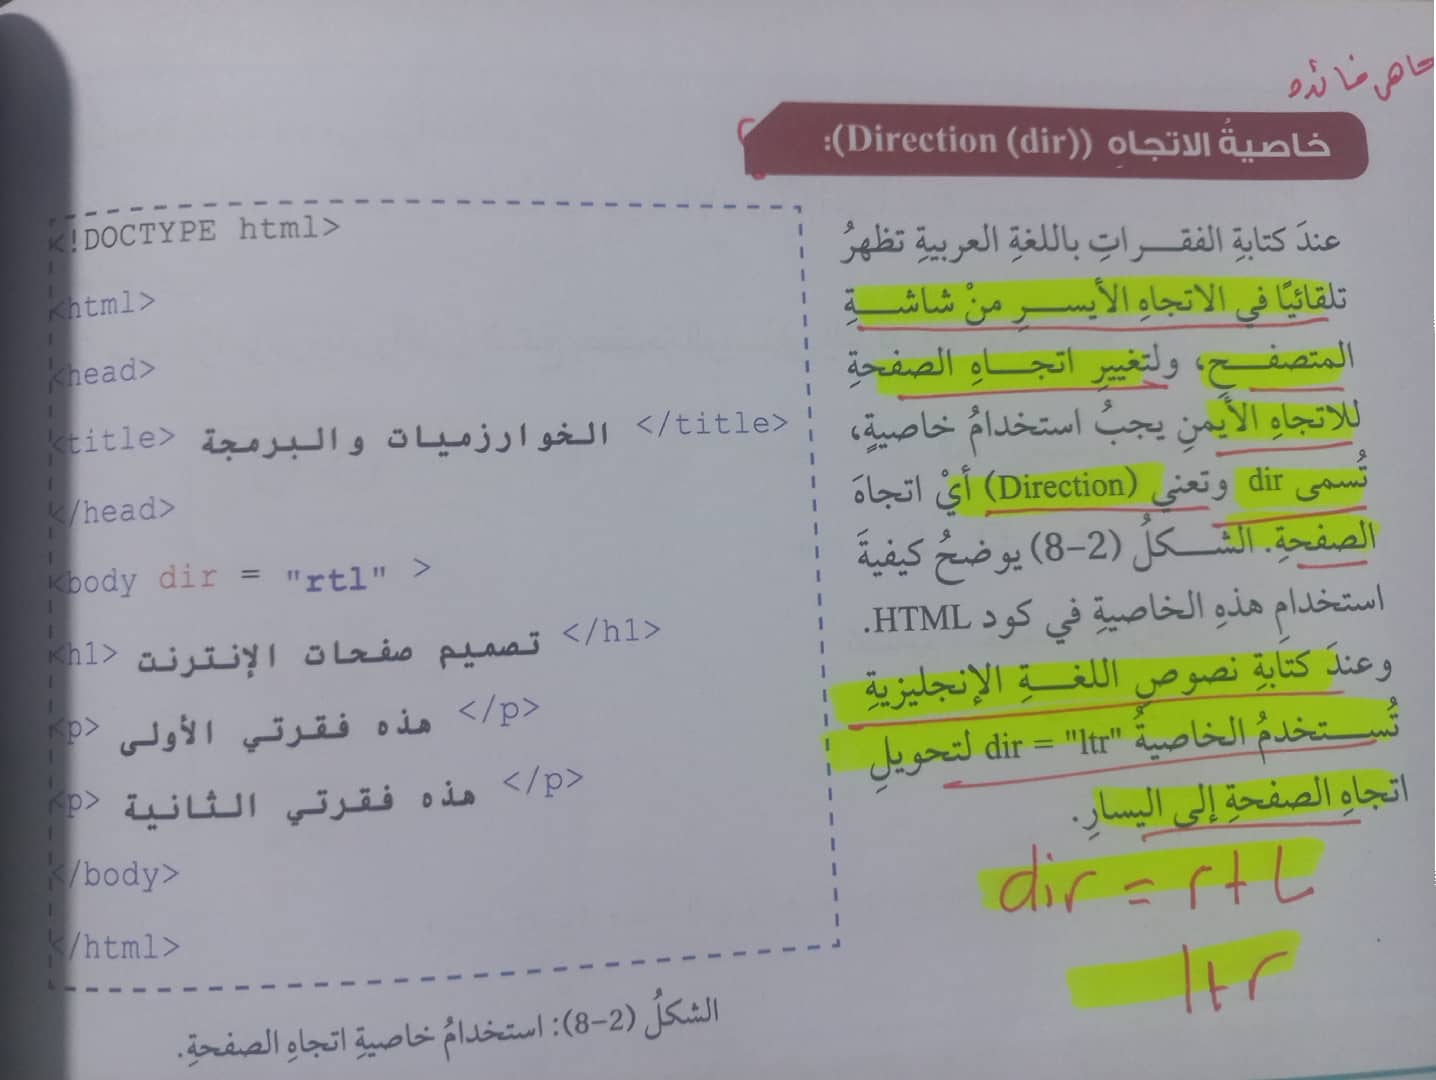 ما هي فائدة
خاصيةُ الاتجاهِ (Direction (dir)):
عندَ كتابةِ الفقراتِ باللغةِ العربيةِ تظهرُ
تلقائيًا في الاتجاهِ الأيسرِ منْ شاشةِ
المتصفحِ، ولتغييرِ اتجاهِ الصفحةِ
للاتجاهِ الأيمنِ يجبُ استخدامُ خاصيةٍ،
تُسمى dir وتعني (Direction) أيْ اتجاهَ
الصفحةِ. الشكلُ (2-8) يوضحُ كيفيةَ
استخدامِ هذهِ الخاصيةِ في كود HTML.
وعندَ كتابةِ نصوصِ اللغةِ الإنجليزيةِ
تُستخدمُ الخاصيةُ dir = "ltr" لتحويلِ
اتجاهِ الصفحةِ إلى اليسارِ.
dir = rtl
ltr
<!DOCTYPE html>
<html>
<head>
<title> الخوارزميات والبرمجة </title>
</head>
<body dir = "rtl" >
<h1> تصميم صفحات الإنترنت </h1>
<p> هذه فقرتي الأولى </p>
<p> هذه فقرتي الثانية </p>
</body>
</html>
الشكلُ (2-8): استخدامُ خاصيةِ اتجاهِ الصفحةِ.